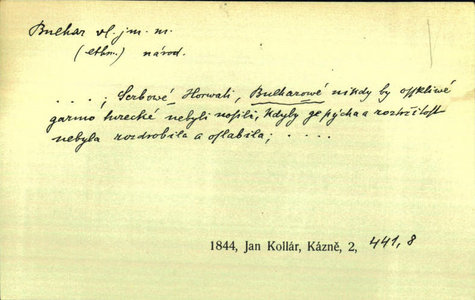 Bulhar vl. jm. m.
(ethn.) národ.
. . . . ; Serbowé, Horwati, Bulharowé nikdy by osskliwé
garmo turecké nebyli nosili, kdyby ge pýcha a roztržitost
nebyla rozdrobila a oslabila; . . . .
1844, Jan Kollár, Kázně, 2, 441, 8